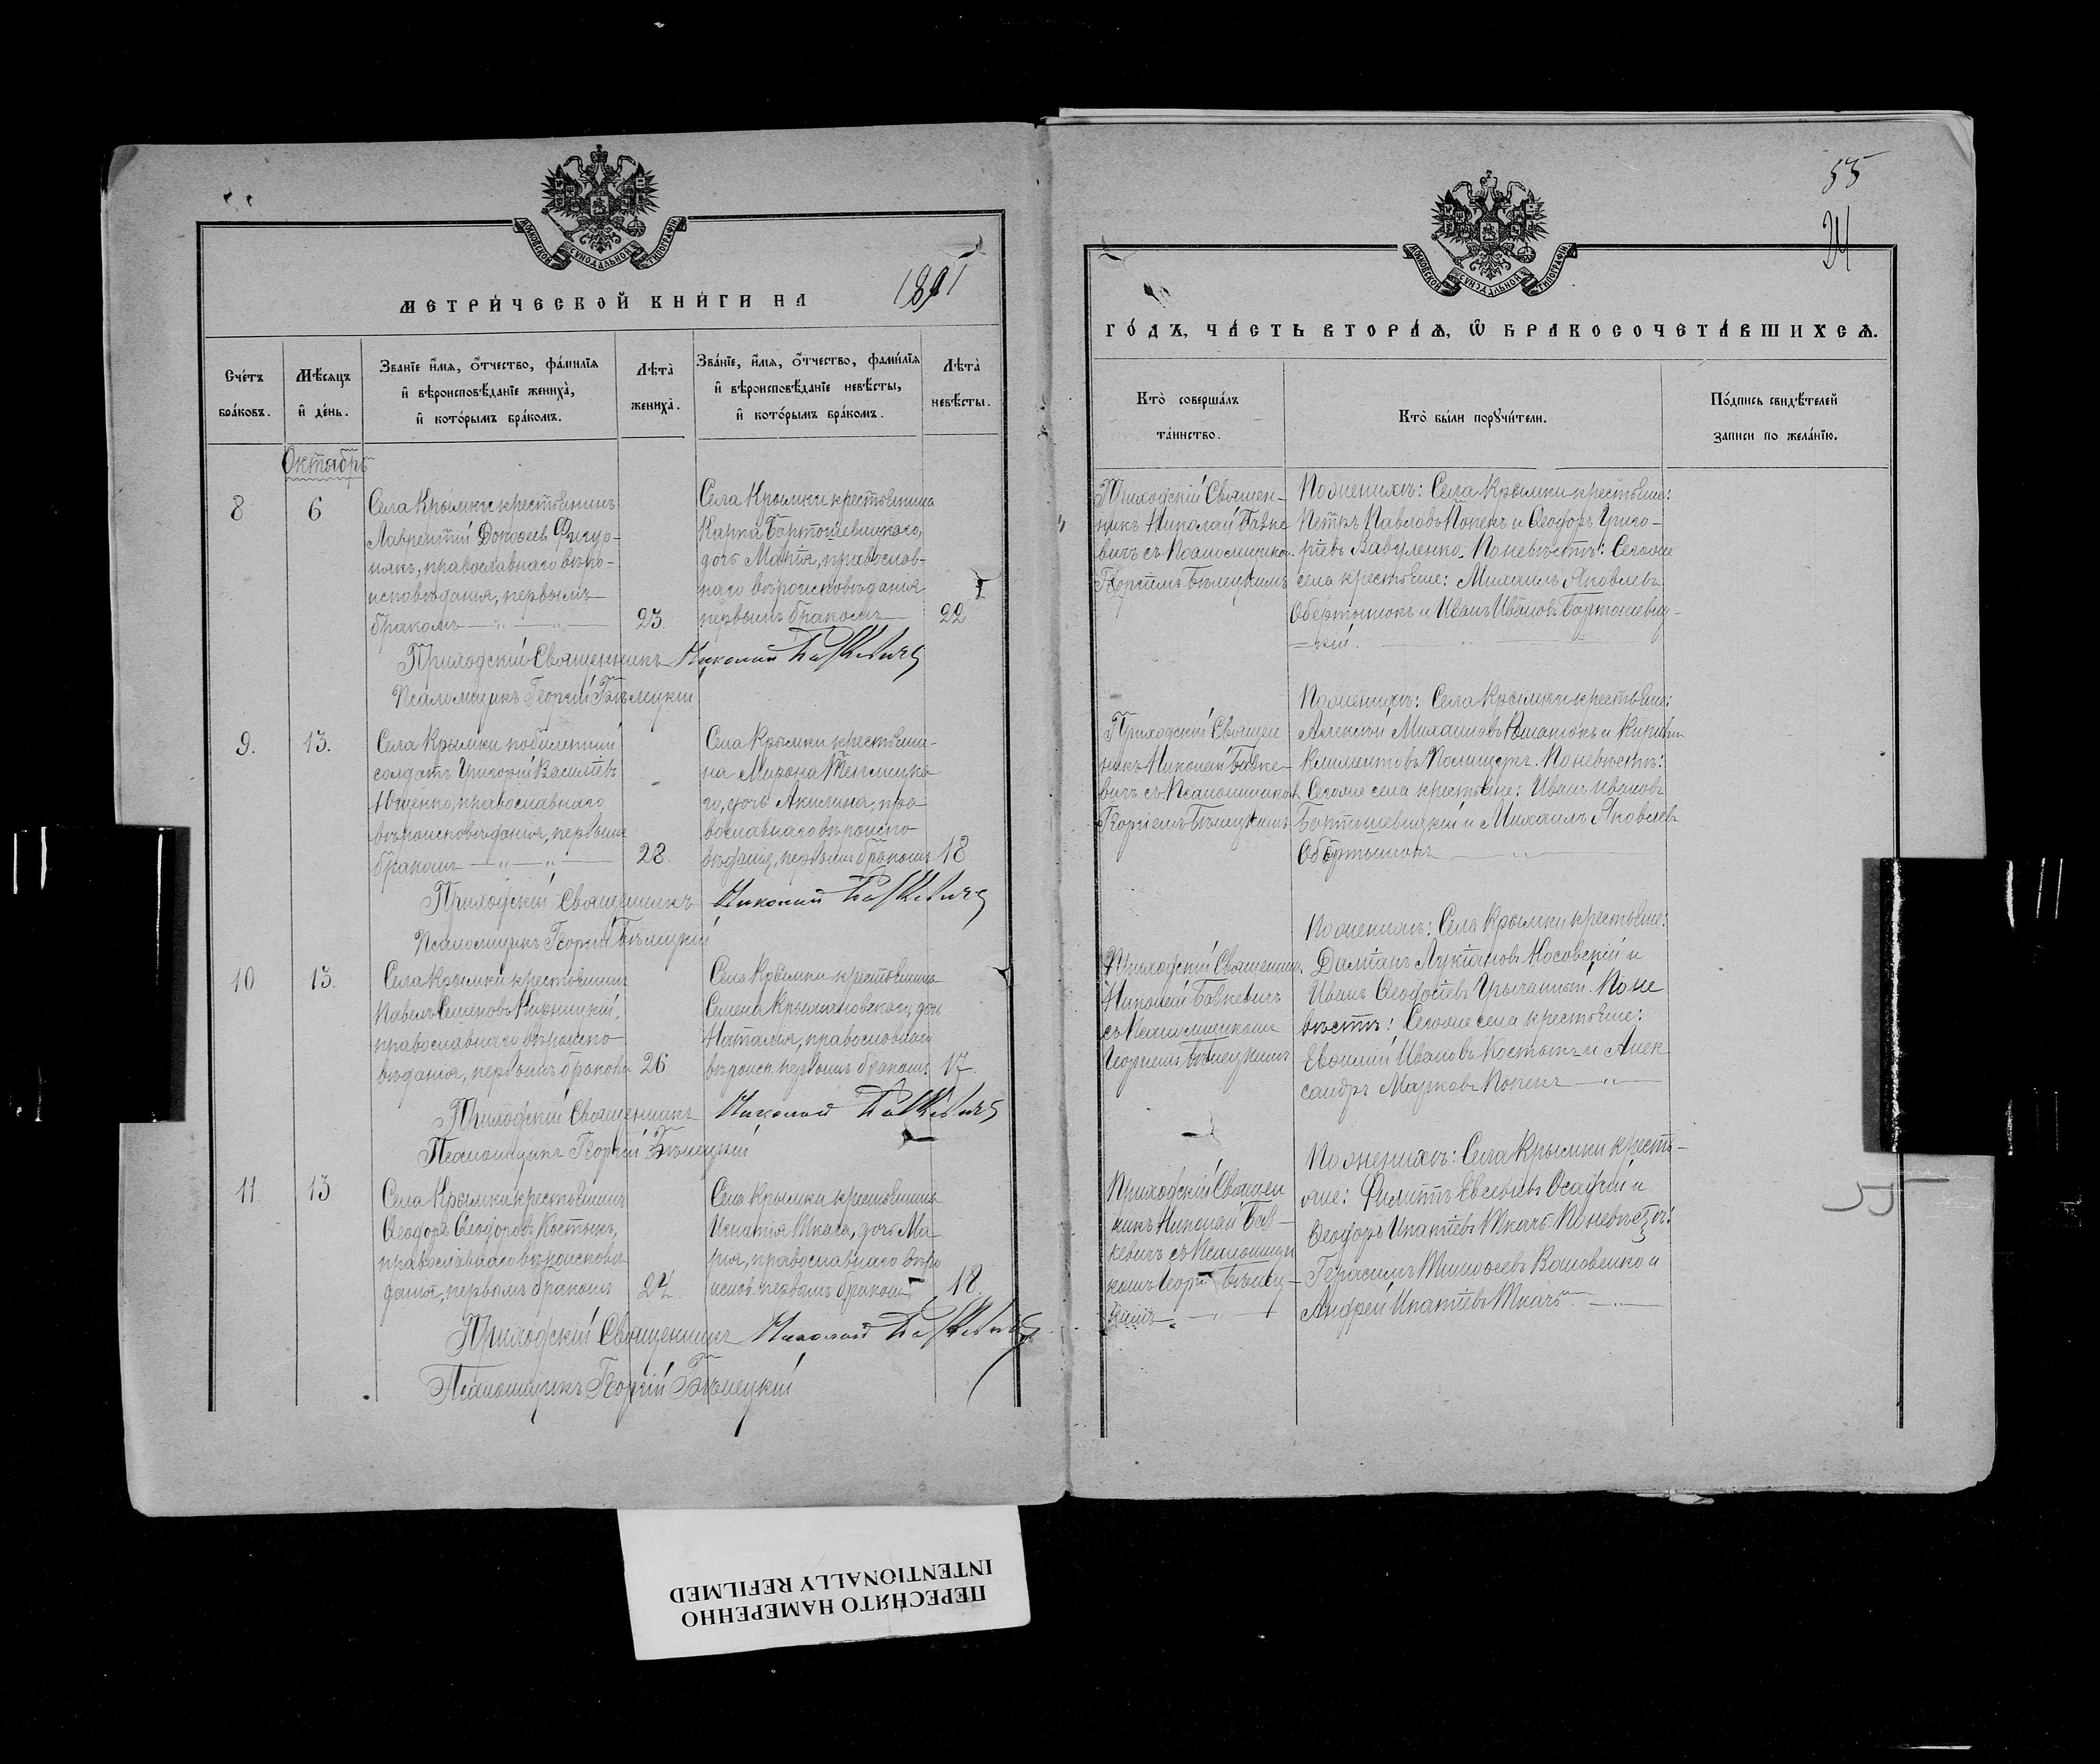 МОСКОВСКОЙ СѴНОДАЛЬНОЙ ТИПОГРАФІИ
МЕТРИ́ЧЕСКОЙ КНИ́ГИ НА 1891
Сче́тъ бра́ковъ.
Мѣ́сяцъ и҆ де́нь.
Зва́нїе и҆́мѧ, ѻ҆́тчество, фами́лїѧ
и҆ вѣроисповѣ́данїе жениха̀,
и҆ кото́рымъ бра́комъ.
Лѣ́та̀ жениха̀.
Зва́нїе, и҆́мѧ, ѻ҆́тчество, фами́лїѧ
и҆ вѣроисповѣ́данїе невѣ́сты,
и҆ кото́рымъ бра́комъ.
Лѣ́та̀ невѣ́сты.
Октябрь
8
6
Села Крымки крестьянинъ
Лаврентій Дороѳеевъ Фигур-
някъ, православнаго вѣро-
исповѣданія, первымъ
бракомъ
23.
Села Крымки крестьянина
Карпа Бартошевицкаго,
дочь Марія, православ-
наго вѣроисповѣданія
первымъ бракомъ
22
Приходскій Священникъ Николай Бавкевичъ
Псаломщикъ Георгій Бѣлецкій
9.
13.
Села Крымки
солдатъ Григорій Васильевъ
Ющенко, православнаго
вѣроисповѣданія, первымъ
бракомъ
28.
Села Крымки крестьяни-
на Мирона Теплицка-
го, дочь Акилина, пра-
вославнаго вѣроиспо-
вѣданія, первымъ бракомъ
18
Приходскій Священникъ Николай Бавкевичъ
Псаломщикъ Георгій Бѣлецкій
10
13.
Села Крымки крестьянинъ
Павелъ Семеновъ
православнаго вѣроиспо-
вѣданія, первымъ бракомъ
26
Села Крымки крестьянина
Семена дочь
Наталія, православнаго
вѣроисп. первымъ бракомъ
17.
Приходскій Священникъ Николай Бавкевичъ
Псаломщикъ Георгій Бѣлецкій
11
13
Села Крымки крестьянинъ
Ѳеодоръ Ѳеодоровъ Костюкъ,
православнаго вѣроисповѣ-
данія, первымъ бракомъ
24.
Села Крымки крестьянина
Игнатія Ткача, дочь Ма-
рія, православнаго вѣро
испов. первымъ бракомъ
18.
Приходскій Священникъ Николай Бавкевичъ
Псаломщикъ Георгій Бѣлецкій
55
МОСКОВСКОЙ СѴНОДАЛЬНОЙ ТИПОГРАФІИ
ГО́ДЪ, ЧА́СТЬ ВТОРА́Ѧ, Ѽ БРАКОСОЧЕТА́ВШИХСѦ.
Кто̀ соверша́лъ
та́инство.
Кто̀ бы́ли порꙋчи́тели.
По́дпись свидѣ́телей
записи по жела́нїю.
Приходскій Священ-
никъ Николай Бавке
вичъ съ Псаломщикомъ
Георгіемъ Бѣлецкимъ
По женихѣ: Села Крымки крестьяне:
Петръ Павловъ Попекъ и Ѳеодоръ Григо-
рьевъ Вавуленко. По невѣстѣ: Сего же
села крестьяне: Михаилъ Яковлевъ
Обертынюкъ и Иванъ Ивановъ Бартошевиц-
кій.
Приходскій Священ
никъ Николай Бавке-
вичъ съ Псаломщикомъ
Георгіемъ Бѣлецкимъ
По женихѣ: Села Крымки крестьяне:
Алексѣй Михаиловъ и
Климентовъ По невѣстѣ:
Сего же села крестьяне: Иванъ Ивановъ
Бартошевицкій и Михаилъ Яковлевъ
Обертынюкъ
Приходскій Священникъ
Николай Бавкевичъ
съ Псаломщикомъ
Георгіемъ Бѣлецкимъ
По женихѣ: Села Крымки крестьяне:
Даміанъ Лукіановъ Косовскій и
Иванъ Ѳеодосіевъ По не
вѣстѣ: Сего же села крестьяне:
Евѳимій Ивановъ Костюкъ и Алек
сандръ Марковъ Попекъ
Приходскій Священ
никъ Николай Бав-
кевичъ съ Псаломщи
комъ Георг Бѣлец-
кимъ
По женихѣ: Села Крымки кресть-
яне: Филиппъ Евсевіевъ Осадчій и
Ѳеодоръ Игнатіевъ Ткачъ. По невѣстѣ:
Герасимъ Тимоѳеевъ и
Андрей Игнатіевъ Ткачъ
55
ПЕРЕСНЯТО НАМЕРЕННО
INTENTIONALLY REFILMED